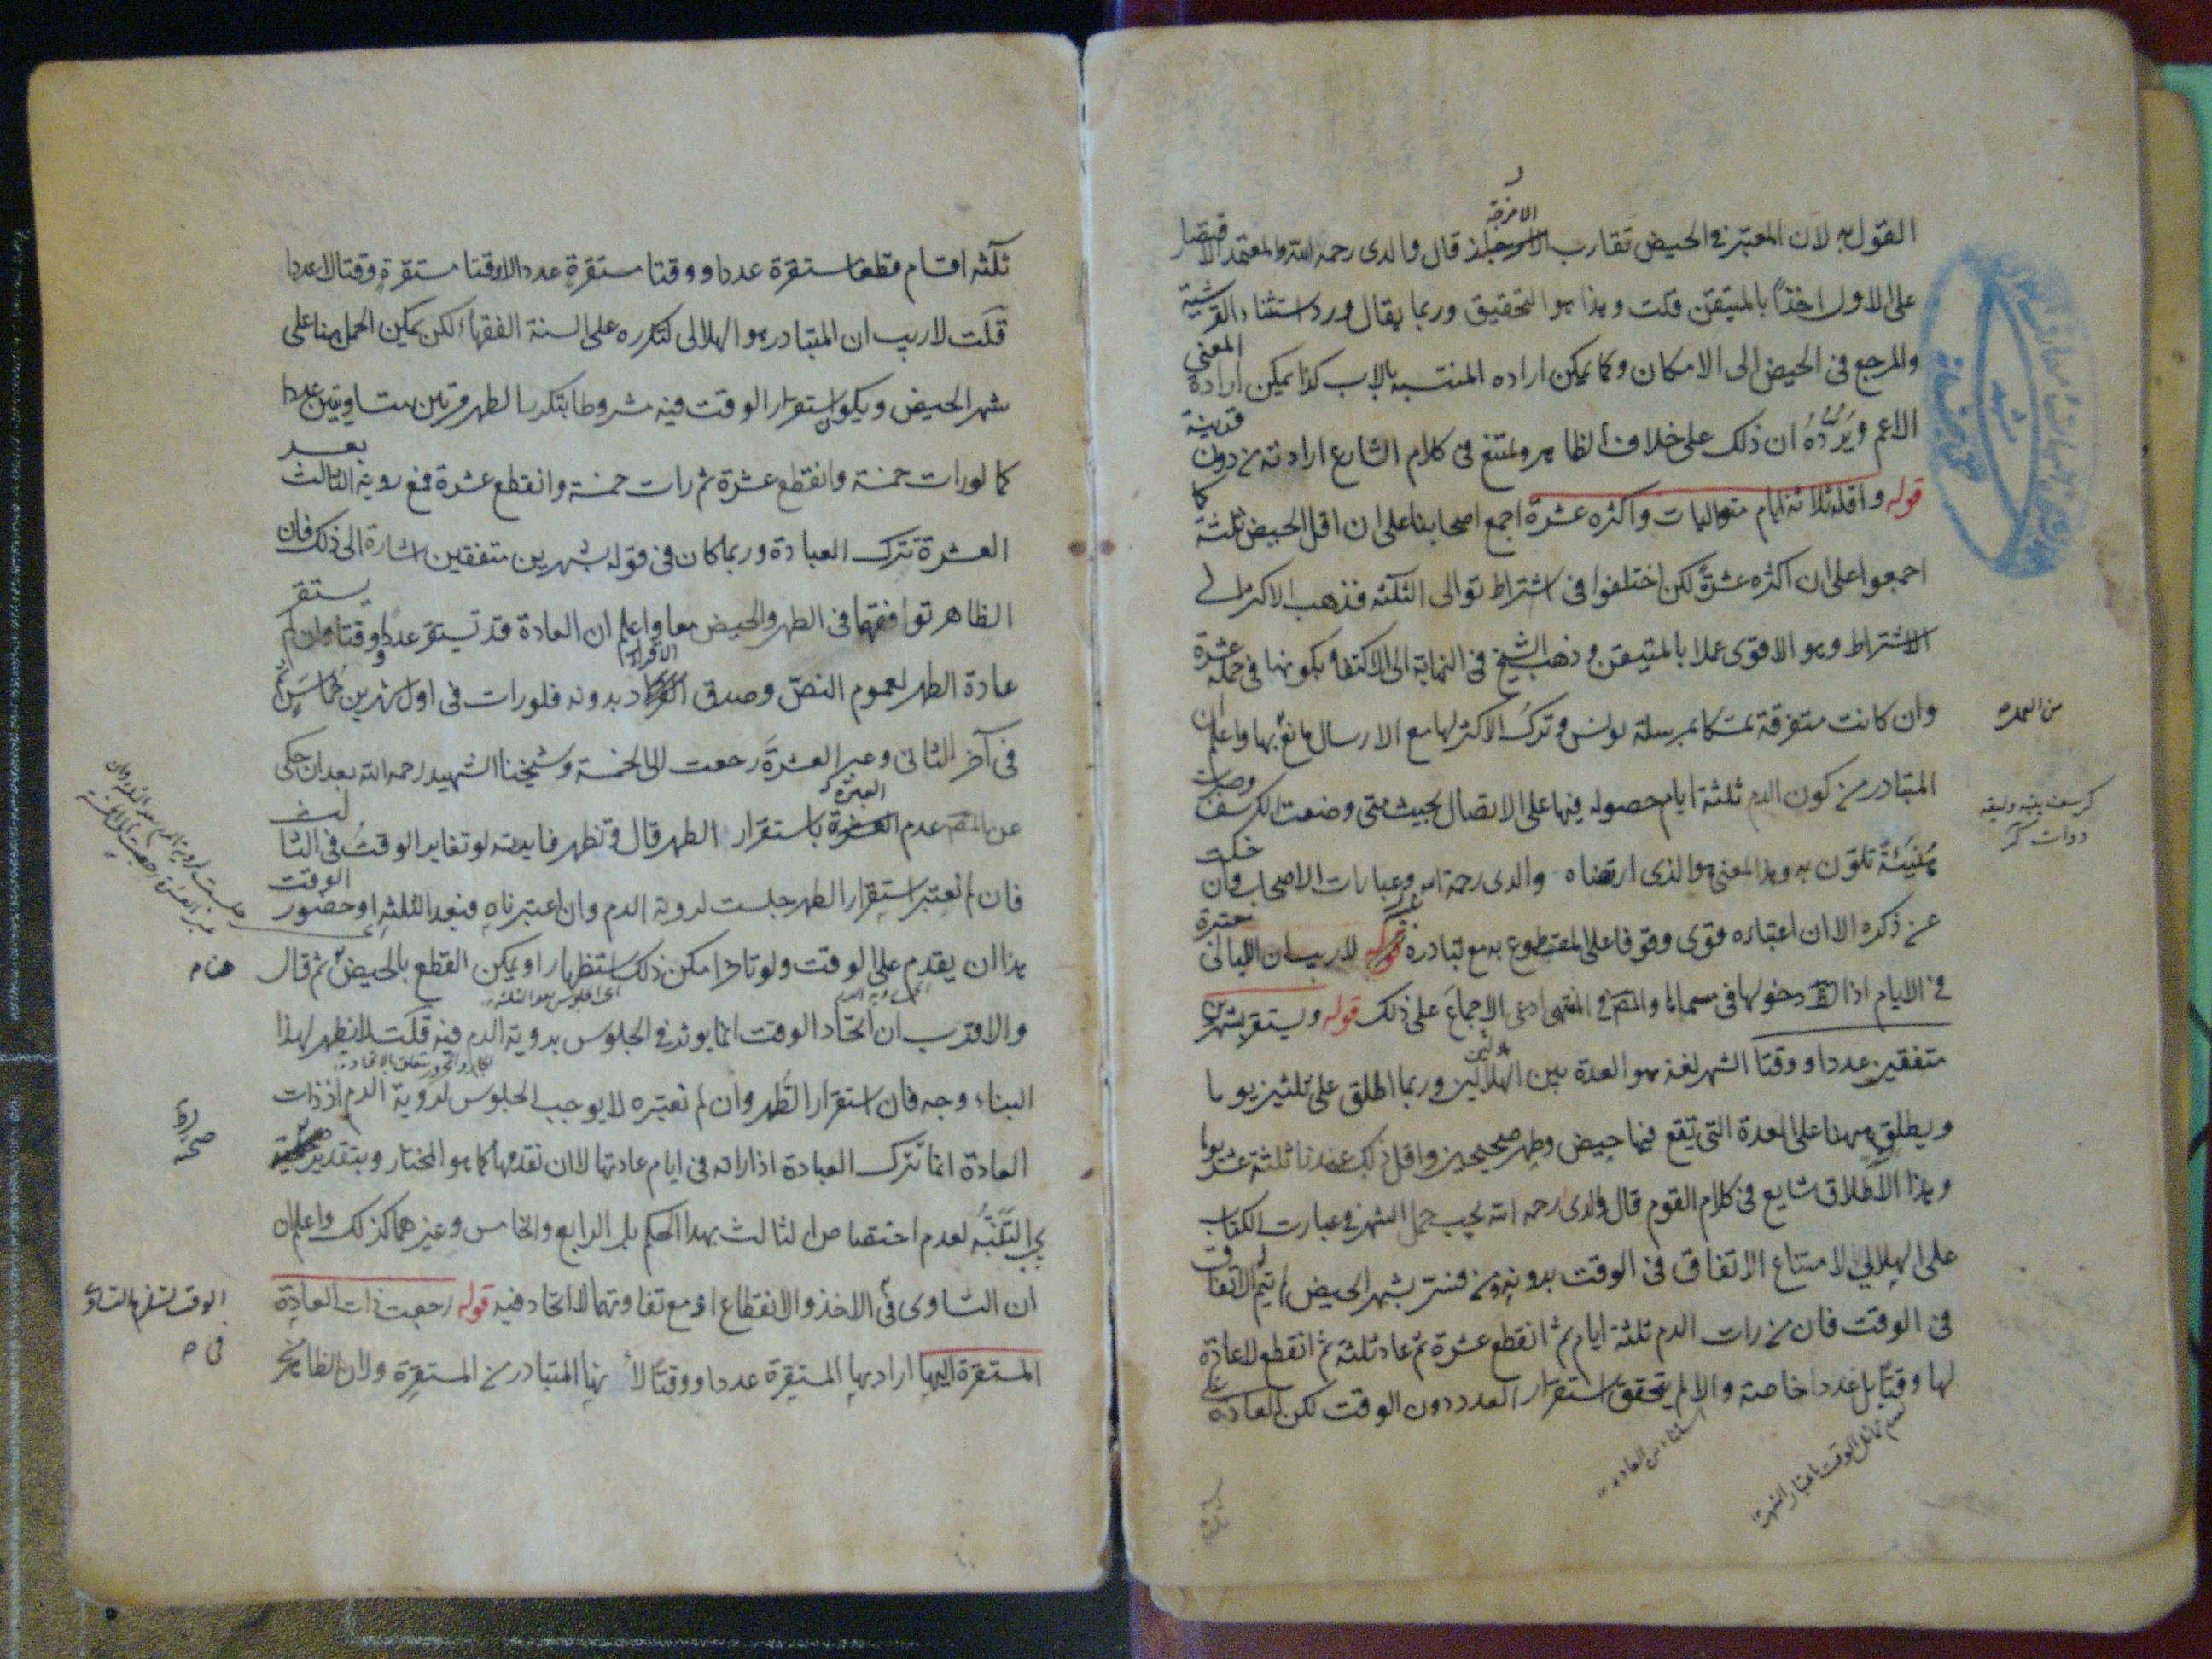 القول به لان المعتبر في الحيض تقارب الامزجة قال والدى رحمه الله والمعتمد الاقتصار
على الاول اخذا بالمتيقن قلت وهذا هو التحقيق وربما يقال ورد استثناء القرشية
والمرجع فى الحيض الى الامكان وكما يمكن اراده المنتسبه بالاب كذا يمكن ارادة المعنى
الاعم ويرده ان ذلك على خلاف الظاهر ويمتنع فى كلام الشارع ارادته من دون قرينة
قوله واقله ثلاثة ايام متواليات واكثره عشرة اجمع اصحابنا على ان اقل الحيض ثلثة كما
اجمعوا على ان اكثره عشرة لكن اختلفوا فى اشتراط توالى الثلثه فذهب الاكثر الى
الاشتراط وهو الاقوى عملا بالمتيقن وذهب الشيخ فى النهاية الى الاكتفاء بكونها فى جملة عشرة
وان كانت متفرقة تمسكا بمرسلة يونس وترك الاكثر لها مع الارسال مانع بها واعلم ان
المتبادر من كون الدم ثلثة ايام حصوله فيها على الاتصال بحيث متى وضعت الكرسف وصبرت
هنيئة تلون به وهذا المعنى هو الذى ارتضاه والدى رحمه الله وعبارات الاصحاب وان خلت
عن ذكره الا ان اعتباره قوى وقوفا على المقطوع به مع تبادره لا ريب ان الليالى معتبرة
فى الايام اما دخولها فى مسماها والمص فى المنتهى ادعى الاجماع على ذلك قوله ويستقر بشهرين
متفقين عددا ووقتا الشهر لغة هو العدة بين الهلالين وربما اطلق على ثلثين يوما
ويطلق ههنا على المدة التى تقع فيها حيض وطهر صحيحين واقل ذلك عندنا ثلثة عشر يوما
وهذا الاطلاق شايع فى كلام القوم قال والدى رحمه الله يجب حمل الشهر فى عبارت الكتاب
على الهلالي لامتناع الاتفاق فى الوقت بدونه ومن فسر بشهر الحيض لم يتم الاتفاق
فى الوقت فان من رات الدم ثلثة ايام ثم انقطع عشرة ثم عاد ثلثة ثم انقطع لا عادة
لها وقتا بل عددا خاصة والا لم يتحقق استقرار العدد دون الوقت لكن العادة على
من العمده
كرسف پنبه وليقه
دوات كنز
نعم تماثل الوقت باعتبار الشهر
استثناء من العاده
ثلثة اقسام قطعا مستقرة عددا ووقتا مستقرة عددا لا وقتا مستقرة وقتا لا عددا
قلت لا ريب ان المتبادر هو الهلالى لتكرره على السنة الفقهاء لكن يمكن الحمل هنا على
شهر الحيض ويكون استقرار الوقت فيه مشروطا بتكرر الطهر مرتين متساويتين عددا
كما لو رات خمسة وانقطع عشرة ثم رات خمسة وانقطع عشرة فمع روية الثالث بعد
العشرة تترك العبادة وربما كان فى قوله بشهرين متفقين اشارة الى ذلك فان
الظاهر توافقهما فى الطهر والحيض معا واعلم ان العادة قد تستقر عددا ووقتا وان لم يستقر
عادة الطهر لعموم النص وصدق الاقراء بدونه فلو رات فى اول شهرين خماسين ثم
فى آخر الثانى وعبر العشرة رجعت الى الخمسة وشيخنا الشهيد رحمه الله بعد ان حكى
عن المص عدم العبرة باستقرار الطهر قال وتظهر فايدته لو تغاير الوقت فى الثالث
فان لم نعتبر استقرار الطهر جلست لروية الدم وان اعتبرناه فبعد الثلثه او حضور الوقت
هذا ان تقدم على الوقت ولو تاخر امكن ذلك استظهارا ويمكن القطع بالحيض ثم قال
والاقرب ان اتحاد الوقت انما يوثر فى الجلوس بروية الدم فيه قلت لا يظهر لهذا
البناء وجه فان استقرار الطهر وان لم نعتبره لا يوجب الجلوس لروية الدم اذ ذات
العادة انما تترك العبادة اذا راته فى ايام عادتها لا ان تقدمها كما هو المختار وبتقدير
يجب التنبه لعدم اختصاص الثالث بهذا الحكم بل الرابع والخامس وغيرهما كذلك واعلم ان
ان التساوى فى الاخذ والانقطاع او مع تفاوتهما لا اتحاد فيه قوله رجعت ذات العادة
المستقرة اليها اراد بها المستقرة عددا ووقتا لانها المتبادر من المستقرة ولان الظاهر
هنا م
صح
فى م